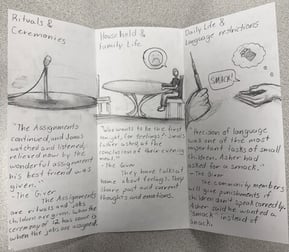 Rituals &
Ceremonies
"The Assignments
continued, and Jonas
watched and listened,
relieved now by the
wonderful assignment
his best friend was
given."
-The Giver
The Assignments
are rituals and jobs
children are given. When the
ceremony of 12 has come is
when the jobs are assigned.
Household &
Family Life
"Who wants to be the first
tonight, for feelings?" Jonas's
father asked at the
conclusion of their evening
meal."
- The Giver
They have talks at
home about feelings. They
share past and current
thoughts and emotions.
Daily Life &
Language restrictions
SMACK!
"Precision of language
was one of the most
important tasks of small
children. Asher had
asked for a smack."
- The Giver
The community members
will give punishments if
children don't speak correctly.
Asher said he wanted a
"smack" instead of
snack.